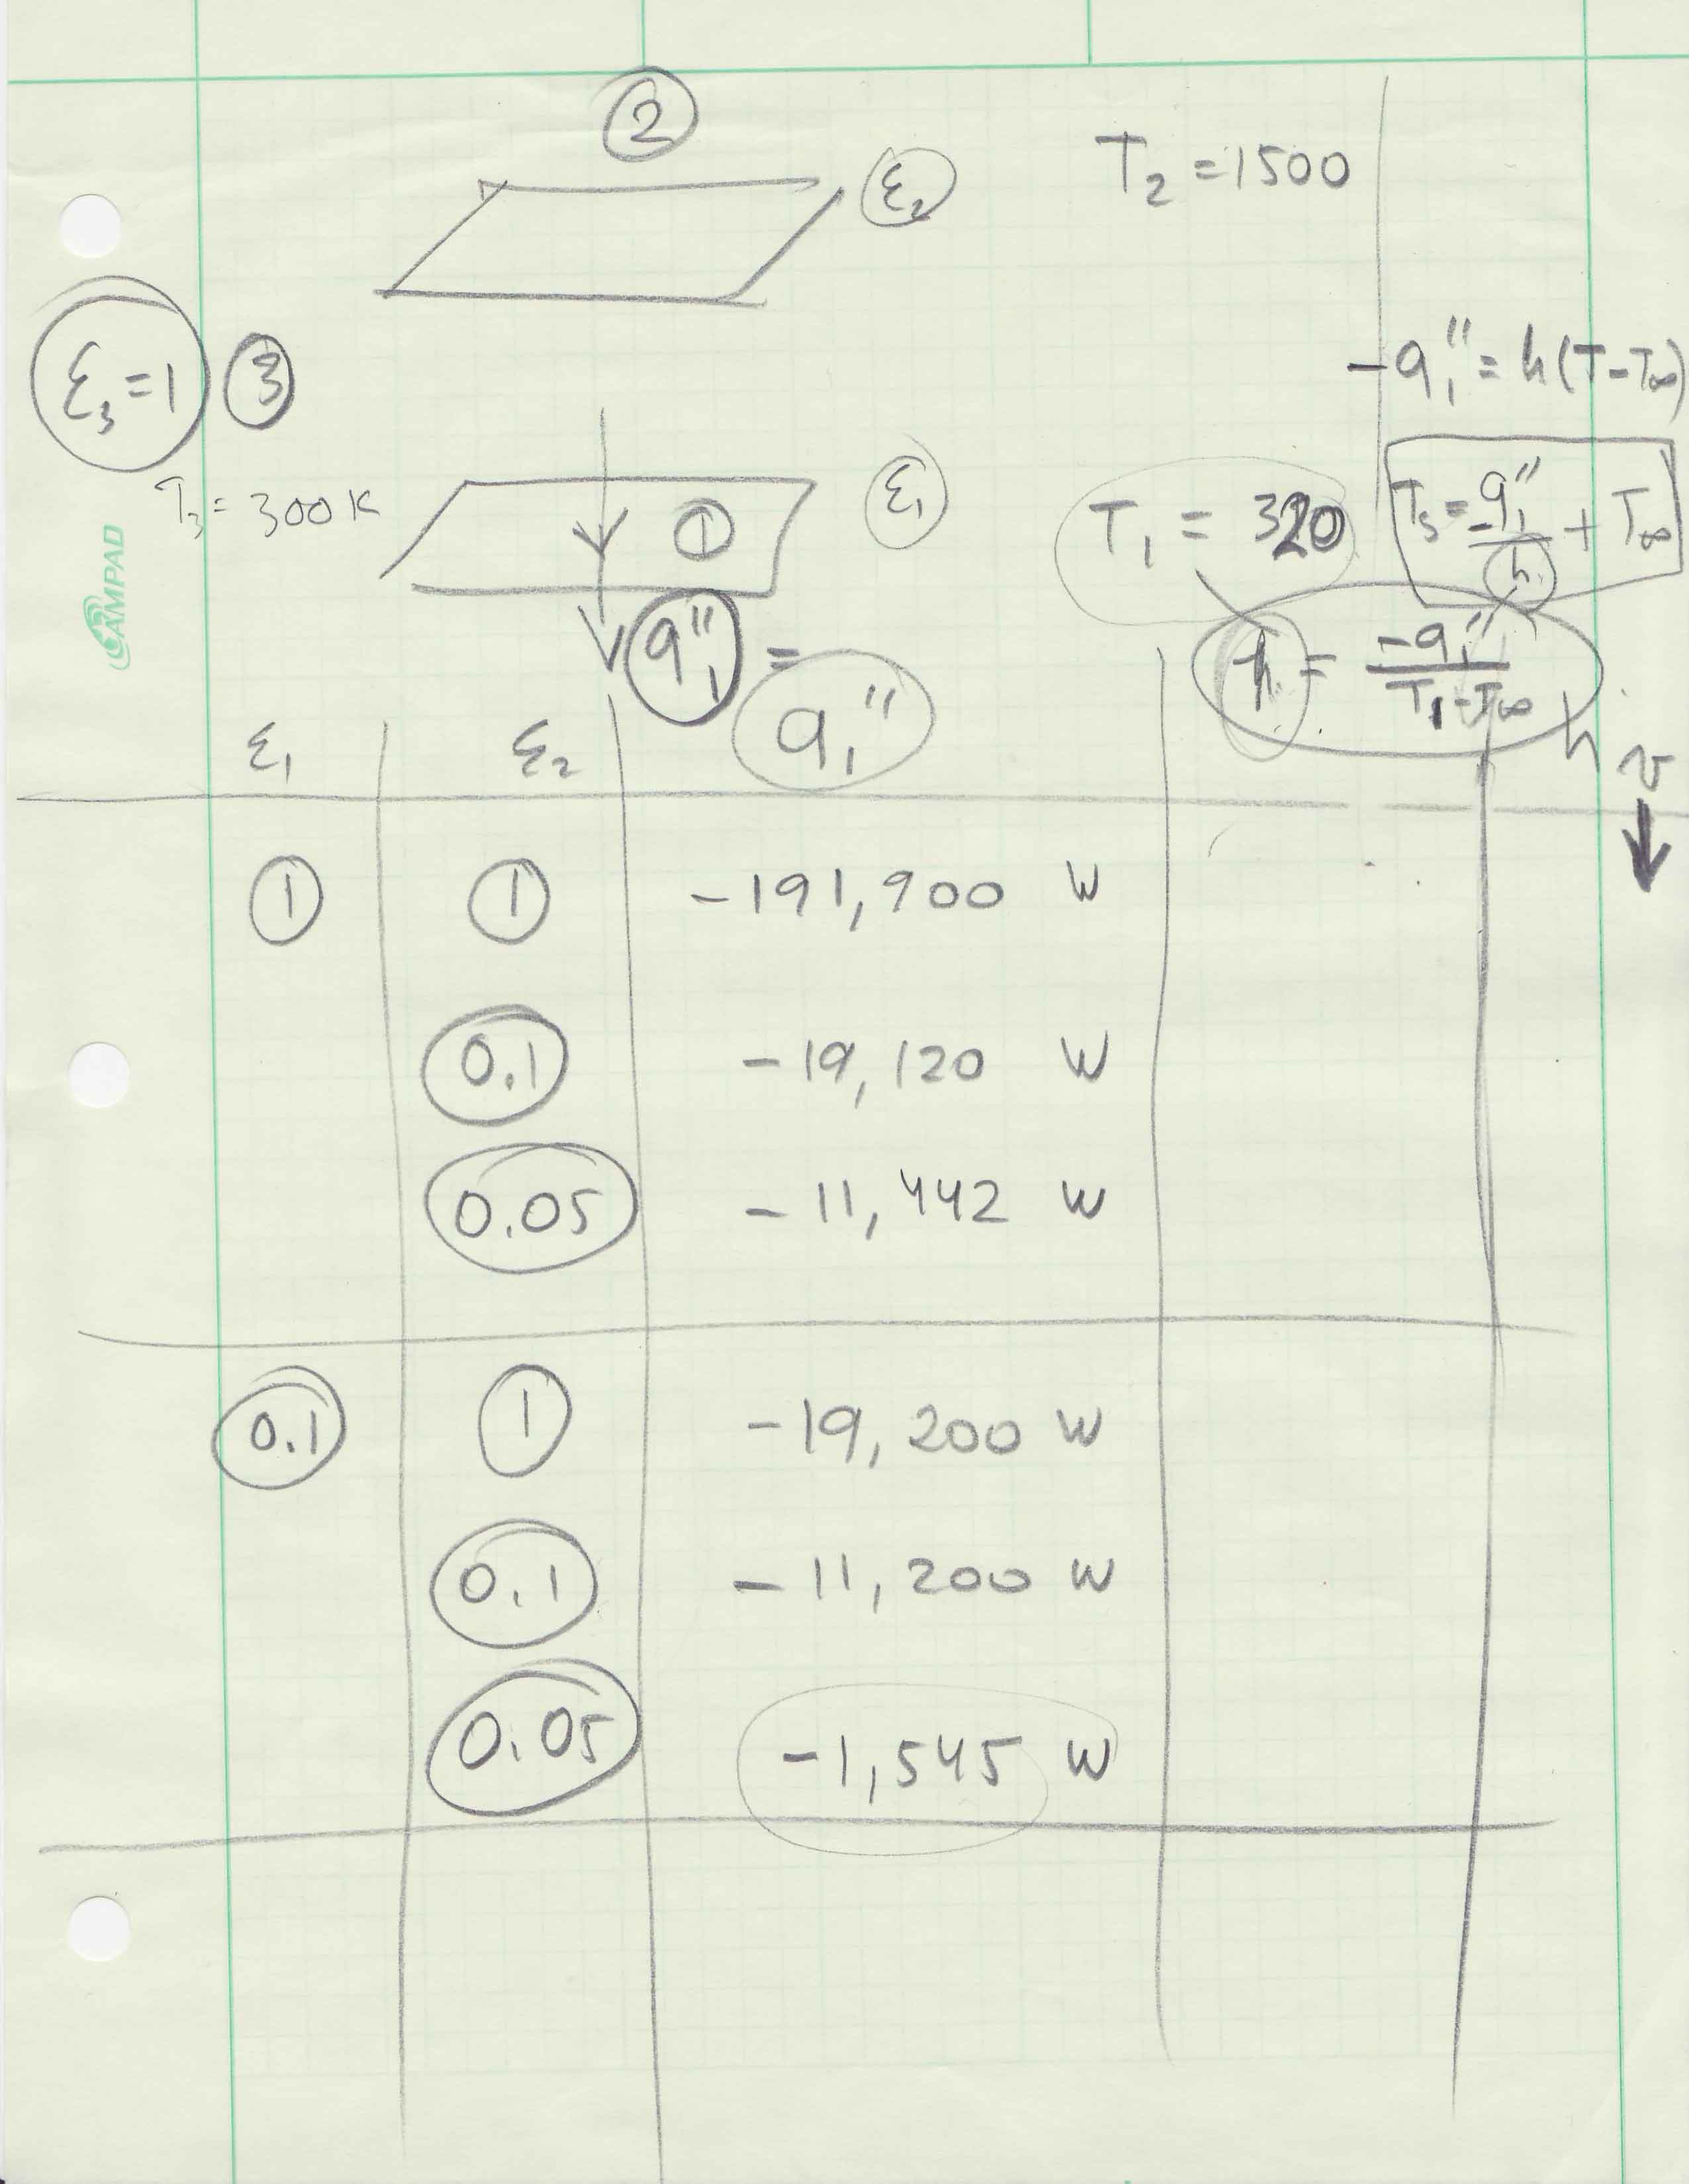 ②
ε₂
T₂ = 1500
ε₃ = 1 ③
-q₁" = h(T-T∞)
T₃ = 300 K
①
ε₁
T₁ = 320
Ts = -q₁"/h + T∞
q₁" =
h = -q₁"/(T₁-T∞)
CAMPAD
ε₁ ε₂ q₁" h v ↓
1 1 -191,900 W
0.1 -19,120 W
0.05 -11,442 W
0.1 1 -19,200 W
0.1 -11,200 W
0.05 -1,545 W